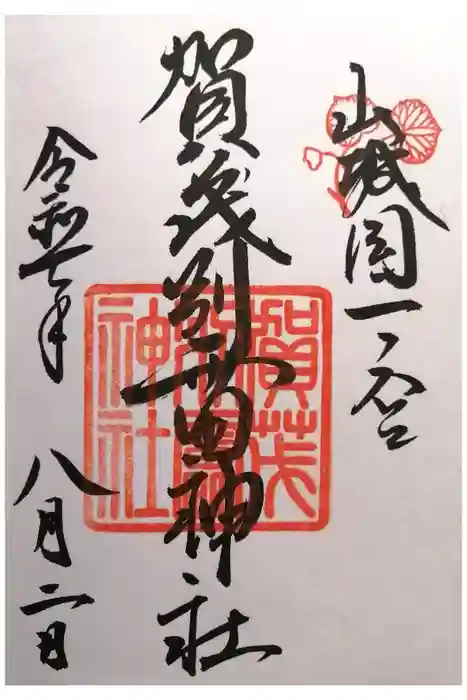 山城国一ノ宮
賀茂別雷神社
賀茂
別雷
神社
令和七年 八月二日